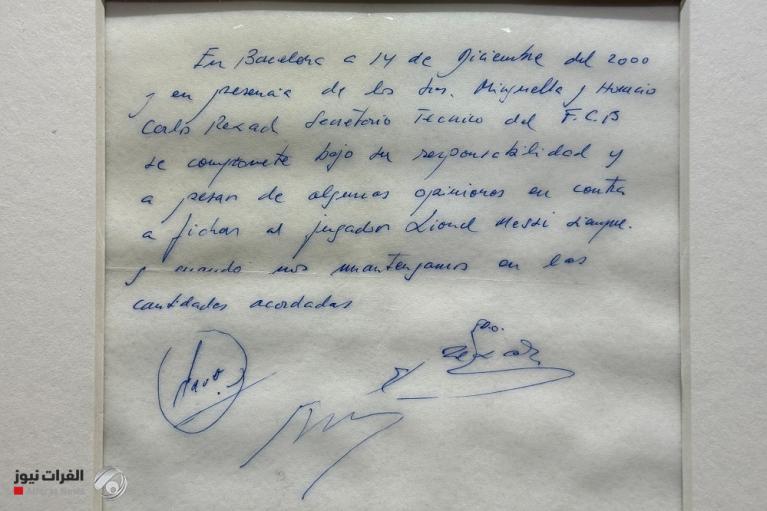 En Barcelona a 14 de Diciembre del 2000
y en presencia de los Sres. Minguella y Horacio
Carlos Rexach Secretario Tecnico del F.C.B
se compromete bajo su responsabilidad y
a pesar de algunas opiniones en contra
a fichar al jugador Lionel Messi siempre
y cuando nos mantengamos en las
cantidades acordadas
الفرات نيوز
Alforat News